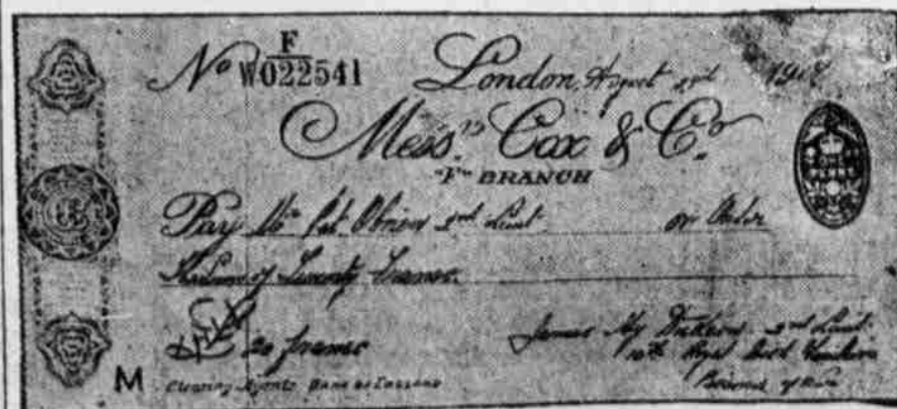 No F
W022541 London, August 1917
Mess.rs Cox & Co.
"F" BRANCH
Pay Mr Pat Obrien 2nd Lieut or Order
The Sum of Twenty francs.
20 francs James 2nd Lieut.
10th Royal
Prisoner of War
M Clearing Agents Bank of England